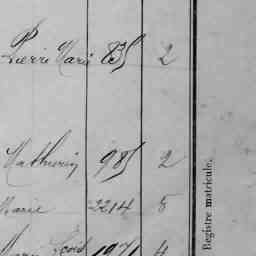 Pierre Marie 835 2
Mathurin 985 2
Marie 2214 5
1971 4
Registre matricule.